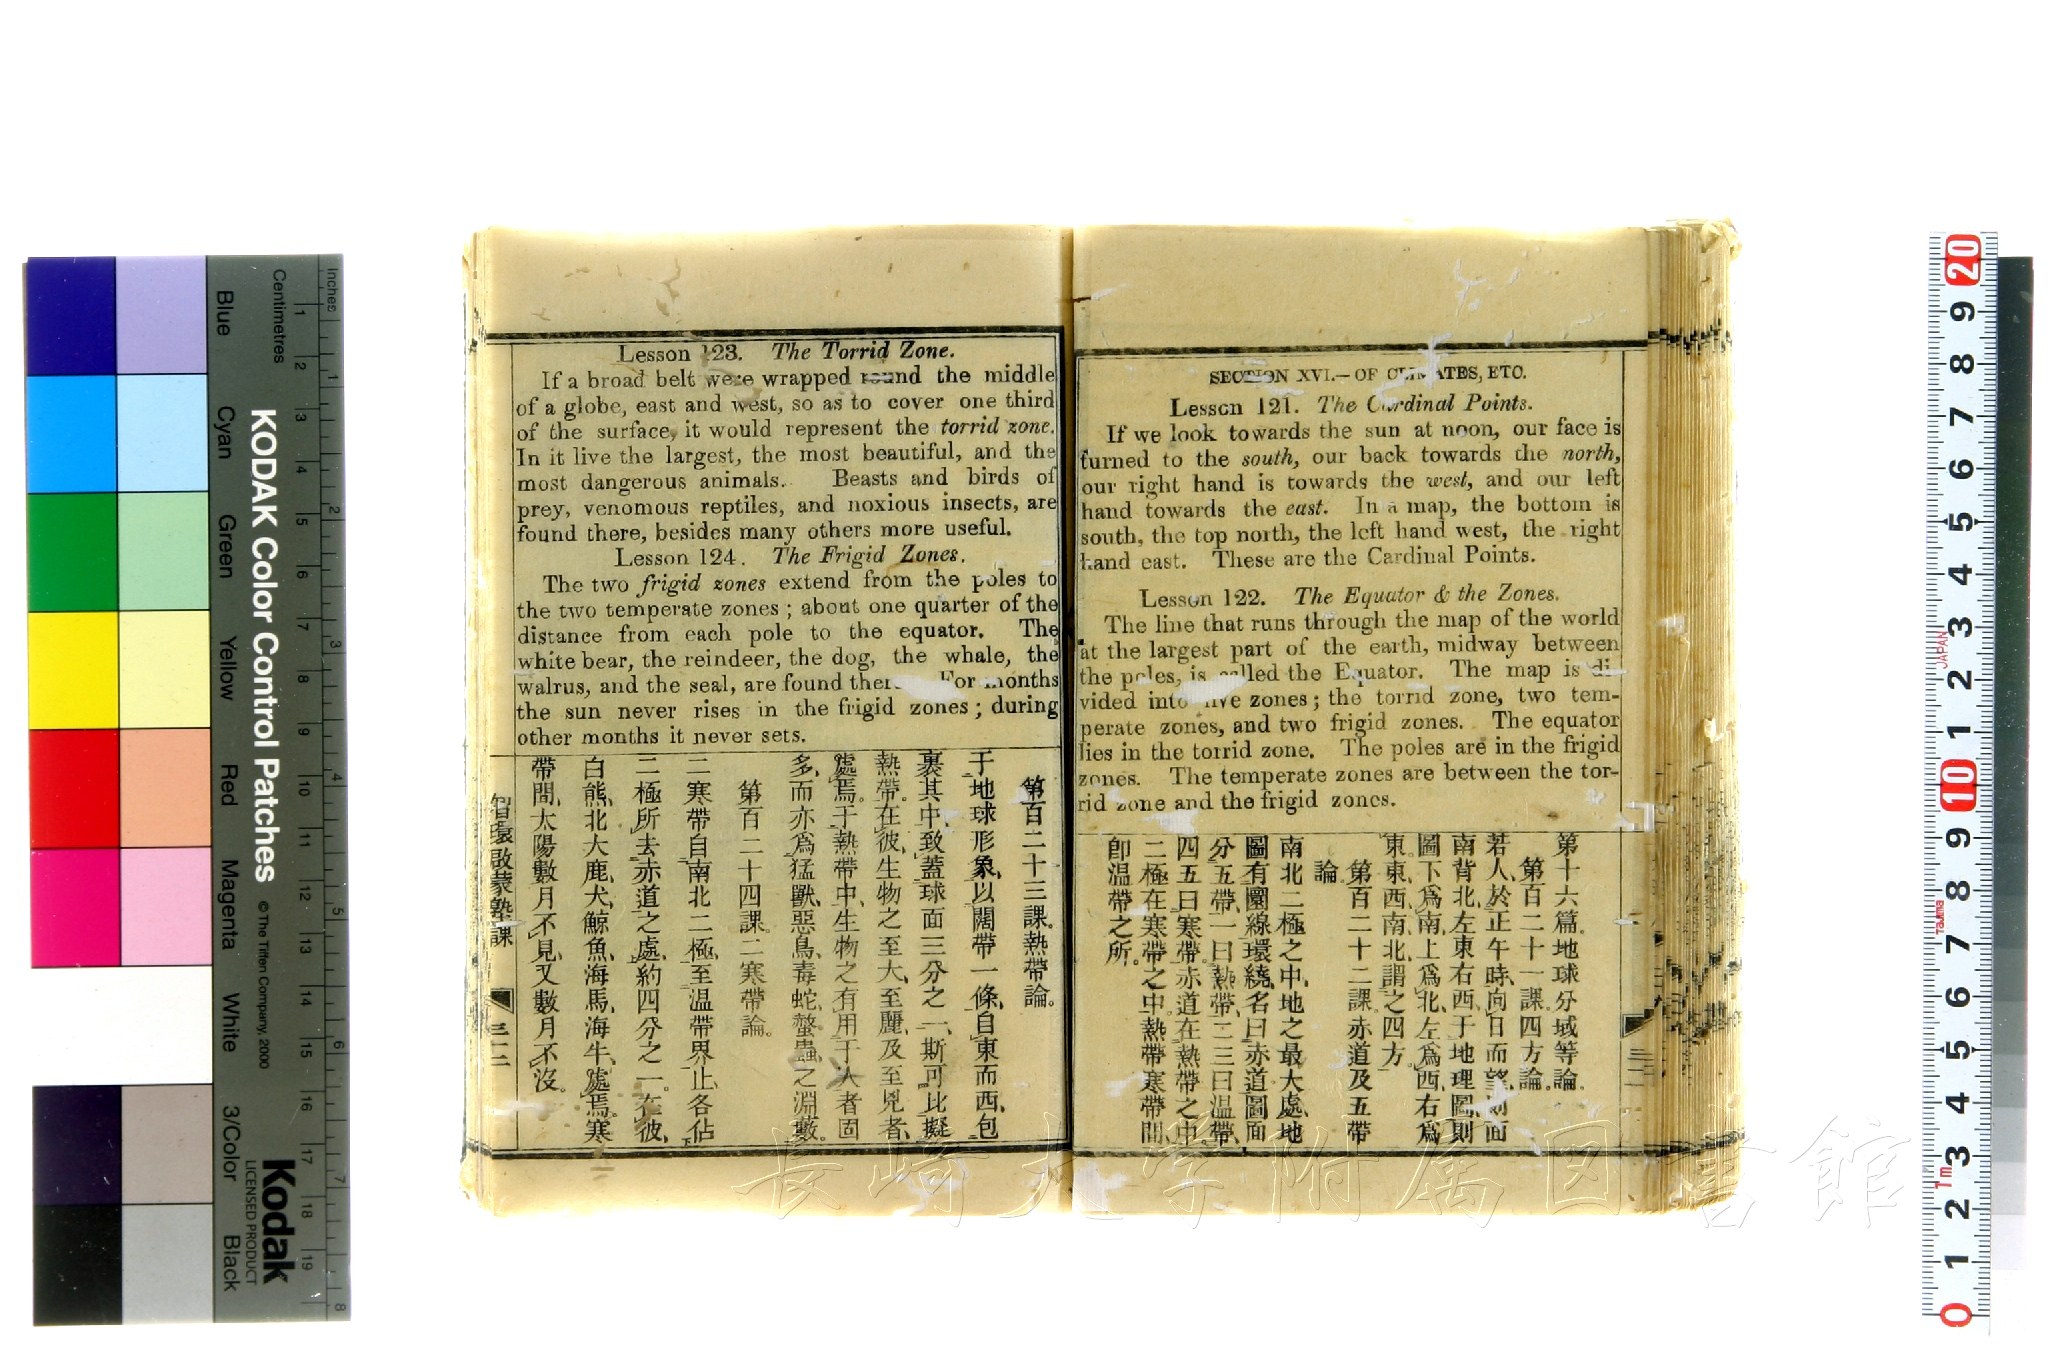 SECTION XVI.—OF CLIMATES, ETC.
Lesson 121. The Cardinal Points.
If we look towards the sun at noon, our face is
turned to the south, our back towards the north,
our right hand is towards the west, and our left
hand towards the east. In a map, the bottom is
south, the top north, the left hand west, the right
hand east. These are the Cardinal Points.
Lesson 122. The Equator & the Zones.
The line that runs through the map of the world
at the largest part of the earth, midway between
the poles, is called the Equator. The map is di-
vided into five zones; the torrid zone, two tem-
perate zones, and two frigid zones. The equator
lies in the torrid zone. The poles are in the frigid
zones. The temperate zones are between the tor-
rid zone and the frigid zones.
第十六篇。地球分域等論。
第百二十一課。四方論。
若人於正午時、向日而望、則面
南背北、左東右西、于地理圖、則
圖下爲南、上爲北、左爲西、右爲
東。東、西、南、北、謂之四方。
第百二十二課。赤道及五帶
論。
南北二極之中、地之最大處、地
圖有圜線環繞、名曰赤道。圖面
分五帶、一曰熱帶、二三曰温帶、
四五曰寒帶。赤道在熱帶之中、
二極在寒帶之中。熱帶寒帶間、
卽温帶之所。
Lesson 123. The Torrid Zone.
If a broad belt were wrapped round the middle
of a globe, east and west, so as to cover one third
of the surface, it would represent the torrid zone.
In it live the largest, the most beautiful, and the
most dangerous animals. Beasts and birds of
prey, venomous reptiles, and noxious insects, are
found there, besides many others more useful.
Lesson 124. The Frigid Zones.
The two frigid zones extend from the poles to
the two temperate zones; about one quarter of the
distance from each pole to the equator. The
white bear, the reindeer, the dog, the whale, the
walrus, and the seal, are found there. For months
the sun never rises in the frigid zones; during
other months it never sets.
第百二十三課。熱帶論。
于地球形象、以闊帶一條、自東而西、包
裹其中、致蓋球面三分之一、斯可比擬
熱帶。在彼、生物之至大、至麗、及至兇者、
處焉。于熱帶中、生物之有用于人者固
多、而亦爲猛獸、惡鳥、毒蛇、螫蟲之淵藪。
第百二十四課。二寒帶論。
二寒帶自南北二極、至温帶界止、各佔
二極所去赤道之處、約四分之一。在彼、
白熊、北大鹿、犬、鯨魚、海馬、海牛、處焉。寒
帶間、太陽數月不見、又數月不沒。
智環啟蒙塾課
三十二
KODAK Color Control Patches
© The Tiffen Company, 2000
Kodak
LICENSED PRODUCT
Inches
Centimetres
1 2 3 4 5 6 7 8 9 10 11 12 13 14 15 16 17 18 19
1 2 3 4 5 6 7 8
Blue
Cyan
Green
Yellow
Red
Magenta
White
3/Color
Black
20 9 8 7 6 5 4 3 2 1 10 9 8 7 6 5 4 3 2 1 0
JAPAN
1m
長崎大学附属図書館